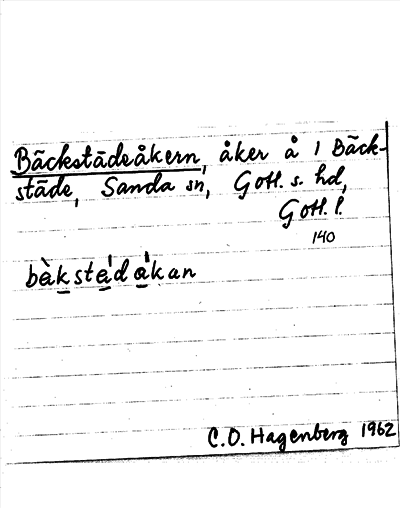 Bäckstädeåkern, åker å 1 Bäck-
städe, Sanda sn, Gotl. s. hd,
Gotl. l.
140
bàkstédákan
C.O. Hagenberg 1962